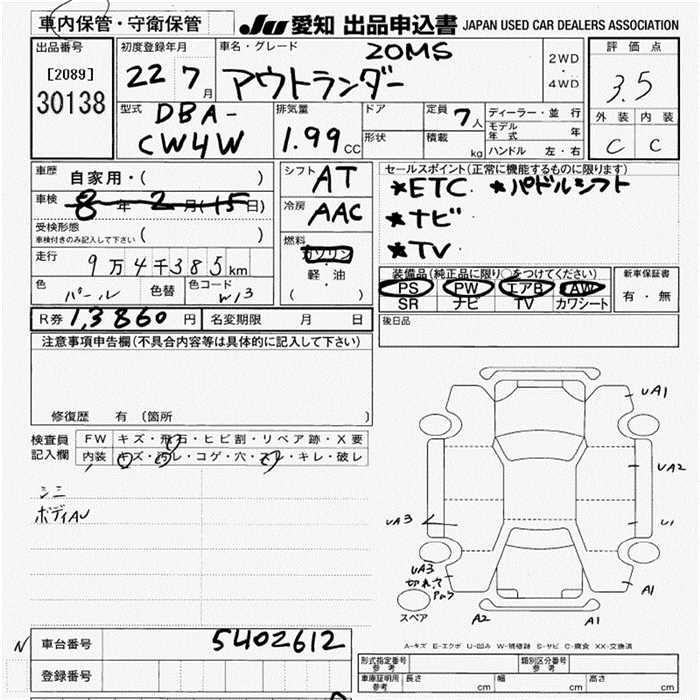 車内保管・守衛保管
JU 愛知 出品申込書 JAPAN USED CAR DEALERS ASSOCIATION
出品番号
[2089]
30138
初度登録年月
22 7月
車名・グレード
20MS
アウトランダー
2WD
・
4WD
評価点
3.5
外装 内装
C C
型式
DBA-
CW4W
排気量
1.99cc
ドア
形状
定員 7人
積載 kg
ディーラー・並行
モデル年式 年
ハンドル 左・右
車歴 自家用・( )
車検 8年2月(15日)
受検形態
車検付きのみ記入して下さい ( )
走行 9万4千385km
色 パール 色替 色コード W13
シフト AT
冷房 AAC
燃料
ガソリン
・
軽油
( )
セールスポイント(正常に機能するものに限ります)
★ETC ★パドルシフト
★ナビ
★TV
装備品(純正品に限り○をつけてください)
PS PW エアB AW
SR ナビ TV カワシート
新車保証書
有・無
R券 1,3860円 名変期限 月 日
後日品
注意事項申告欄(不具合内容等は具体的に記入して下さい)
修復歴 有(箇所
検査員記入欄
FW キズ・飛石・ヒビ割・リペア跡・X要
内装 キズ・汚レ・コゲ・穴・スレ・キレ・破レ
シミ
ボディAU
UA1
UA2
UA3
U1
UA3
切れて
A1
A1
A2
スペア
A-キズ E-エクボ U-凹み W-補修跡 S-サビ C-腐食 XX-交換済
N
車台番号 5402612
登録番号
形式指定番号
参考
類別区分番号
参考
車庫証明用
参考
長さ cm 幅 cm 高さ cm